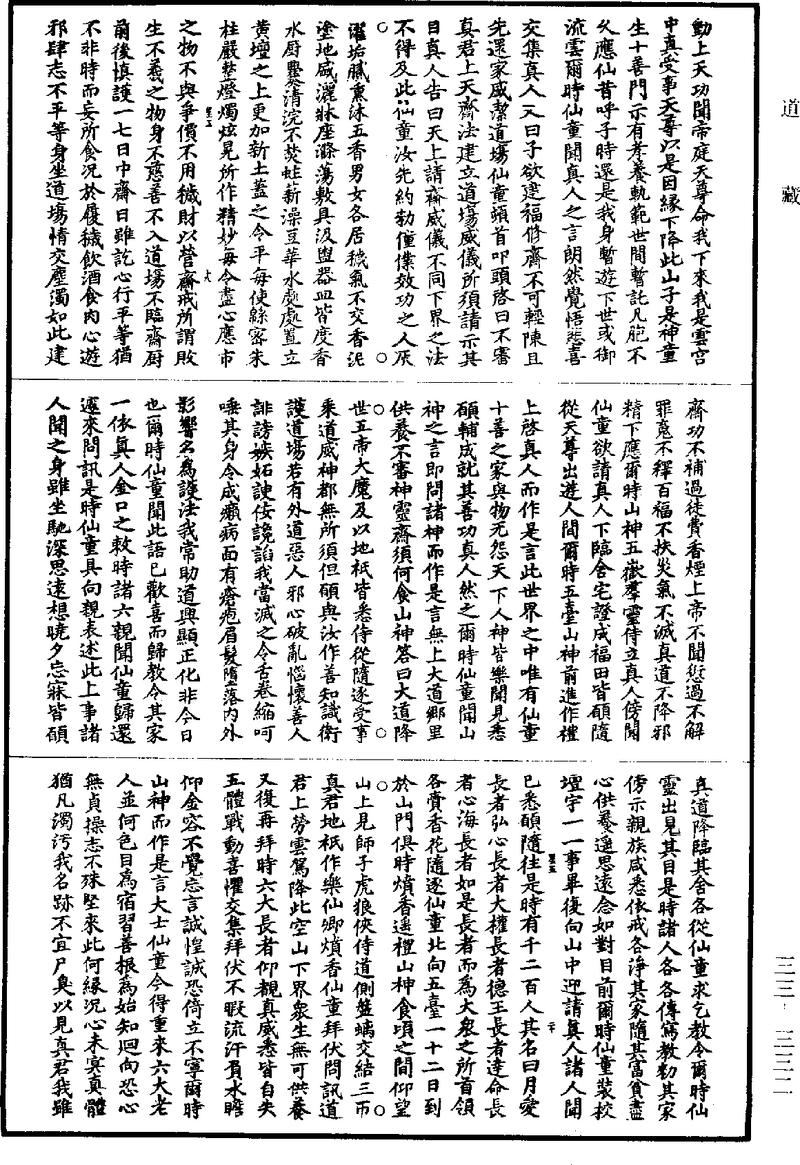 道藏
三三·三三二
動上天功聞帝庭天尊命我下來我是雲宮
中真受事天尊以是因緣下降此山子是神童
生十善門示有孝養軌範世間暫託凡胞不
久應仙昔呼子時還是我身暫遊下世或御
流雲爾時仙童聞真人之言朗然覺悟悲喜
交集真人又曰子欲建福修齋不可輕陳且
先還家威潔道場仙童頭首叩頭啓曰不審
真君上天齋法建立道場威儀所須請示其
目真人告曰天上請齋威儀不同下界之法
不得及此仙童汝先約勑僮僕效功之人灰
濯垢膩熏沐五香男女各居穢氣不交香泥
塗地威灑牀座滌蕩敷具汲轝器皿皆度香
水廚爨清浣不焚蛀薪澡豆華水處處置立
黃壇之上更加新土蓋之令平每使餘密朱
柱嚴整燈燭炫晃所作精妙每令盡心應市
之物不與爭價不用穢財以營齋戒所謂敗
生不養之物身不慈善不入道場不臨齋廚
前後慎護一七日中齋日雖訖心行平等猶
不非時而妄所食況於履穢飲酒食肉心遊
邪肆志不平等身坐道場情交塵濁如此建
齋功不補過徒費香煙上帝不聞愆過不解
罪寃不釋百福不挾災氣不滅真道不降邪
精下應爾時山神五嶽羣靈侍立真人傍聞
仙童欲請真人下臨舍宅證成福田皆願隨
從天尊出遊人間爾時五臺山神前進作禮
上啓真人而作是言此世界之中唯有仙童
十善之家與物无怨天下人神皆樂聞見悉
願輔成就其善功真人然之爾時仙童聞山
神之言即問諸神而作是言無上大道鄉里
供養不審神靈齋須何食山神答曰大道降
世五帝大魔及以地祇皆悉侍從隨逐受事
乘道威神都無所須但願與汝作善知識衛
護道場若有外道惡人邪心破亂惱懷善人
誹謗嫉妬諛佞讒諂我當滅之令舌卷縮呵
唾其身令成癩病面有瘡疱眉髮墮落內外
影響名為護法我常助道興顯正化非今日
也爾時仙童聞此語已歡喜而歸教令其家
一依真人金口之敕時諸六親聞仙童歸還
遽來問訊是時仙童具向親表述此上事諸
人聞之身雖坐馳深思遠想曉夕忘寐皆願
真道降臨其舍各從仙童求乞教令爾時仙
靈出見其目是時諸人各各傳寫教勑其家
傍示親族咸悉依戒各淨其家隨其富貧盡
心供養邈思遠念如對目前爾時仙童裝校
壇宇一一事畢復向山中迎請真人諸人聞
已悉願隨往是時有千二百人其名曰月愛
長者弘心長者大權長者德王長者達命長
者心海長者如是長者而為大衆之所首領
各齎香花隨逐仙童北向五臺一十二日到
於山門俱時燌香遙禮山神食頃之間仰望
山上見師子虎狼俠侍道側盤螭交結三帀
真君地祇作樂仙卿燌香仙童拜伏問訊道
君上勞雲駕降此空山下界衆生無可供養
又復再拜時六大長者仰觀真威悉皆自失
五體戰動喜懼交集拜伏不暇流汗貝水瞻
仰金容不覺忘言誠惶誠恐倚立不寧爾時
山神而作是言大士仙童今得重來六大老
人並何色目為宿習善根為始知迴向恐心
無貞操志不殊堅來此何緣況心未寞真體
猶凡濁污我名跡不宜尸臭以見真君我雖